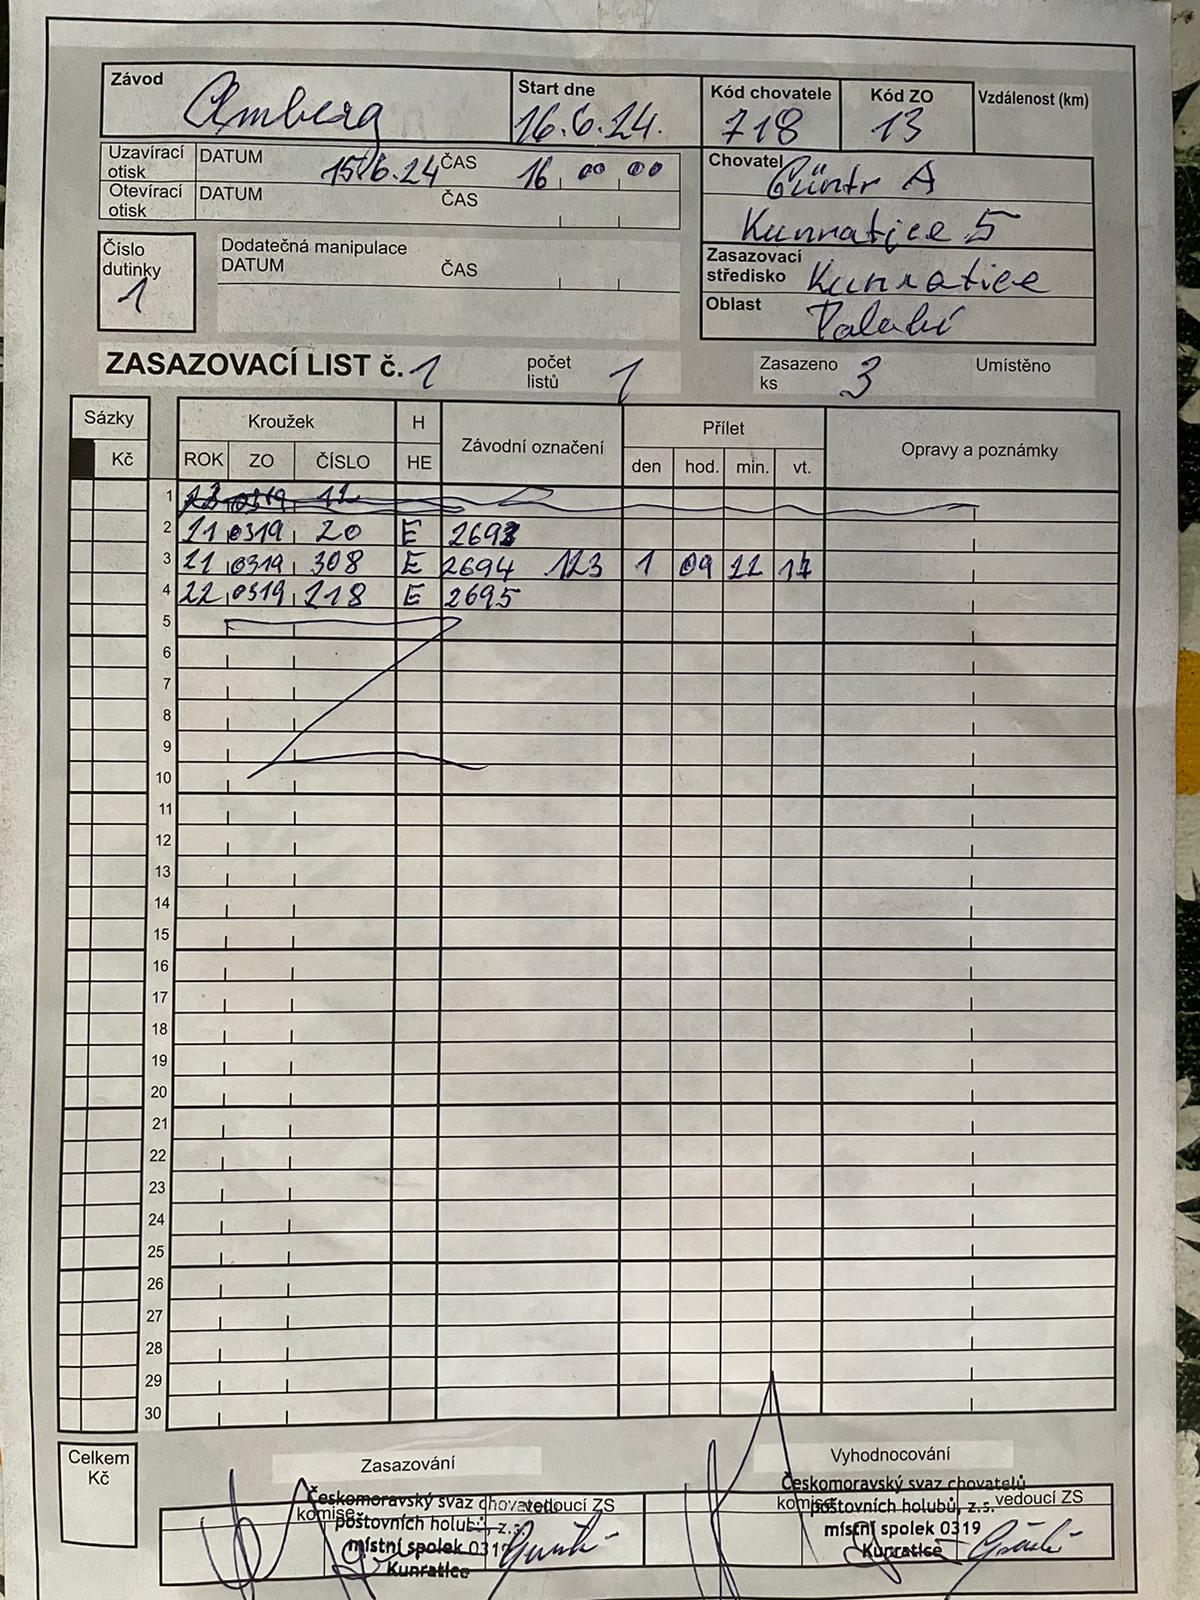 Závod Start dne Kód chovatele Kód ZO Vzdálenost (km)
Amberg 16.6.24. 718 13
Uzavírací otisk DATUM 15.6.24 ČAS 16 00 00
Otevírací otisk DATUM ČAS
Chovatel Güntr A
Kunratice 5
Číslo dutinky 1
Dodatečná manipulace
DATUM ČAS
Zasazovací středisko Kunratice
Oblast
ZASAZOVACÍ LIST č. 1 počet listů 1 Zasazeno ks 3 Umístěno
Sázky Kroužek H Závodní označení Přílet Opravy a poznámky
Kč ROK ZO ČÍSLO HE den hod. min. vt.
1 0319
2 21 0319 20 E
3 21 0319 308 E 2694 123 1 09 22
4 22 0319 218 E 2695
5
6
7
8
9
10
11
12
13
14
15
16
17
18
19
20
21
22
23
24
25
26
27
28
29
30
Celkem Kč
Zasazování Vyhodnocování
Českomoravský svaz chovatelů
komise vedoucí ZS
poštovních holubů, z.s.
místní spolek 0319
Kunratice
Českomoravský svaz chovatelů
komise vedoucí ZS
poštovních holubů, z.s.
místní spolek 0319
Kunratice